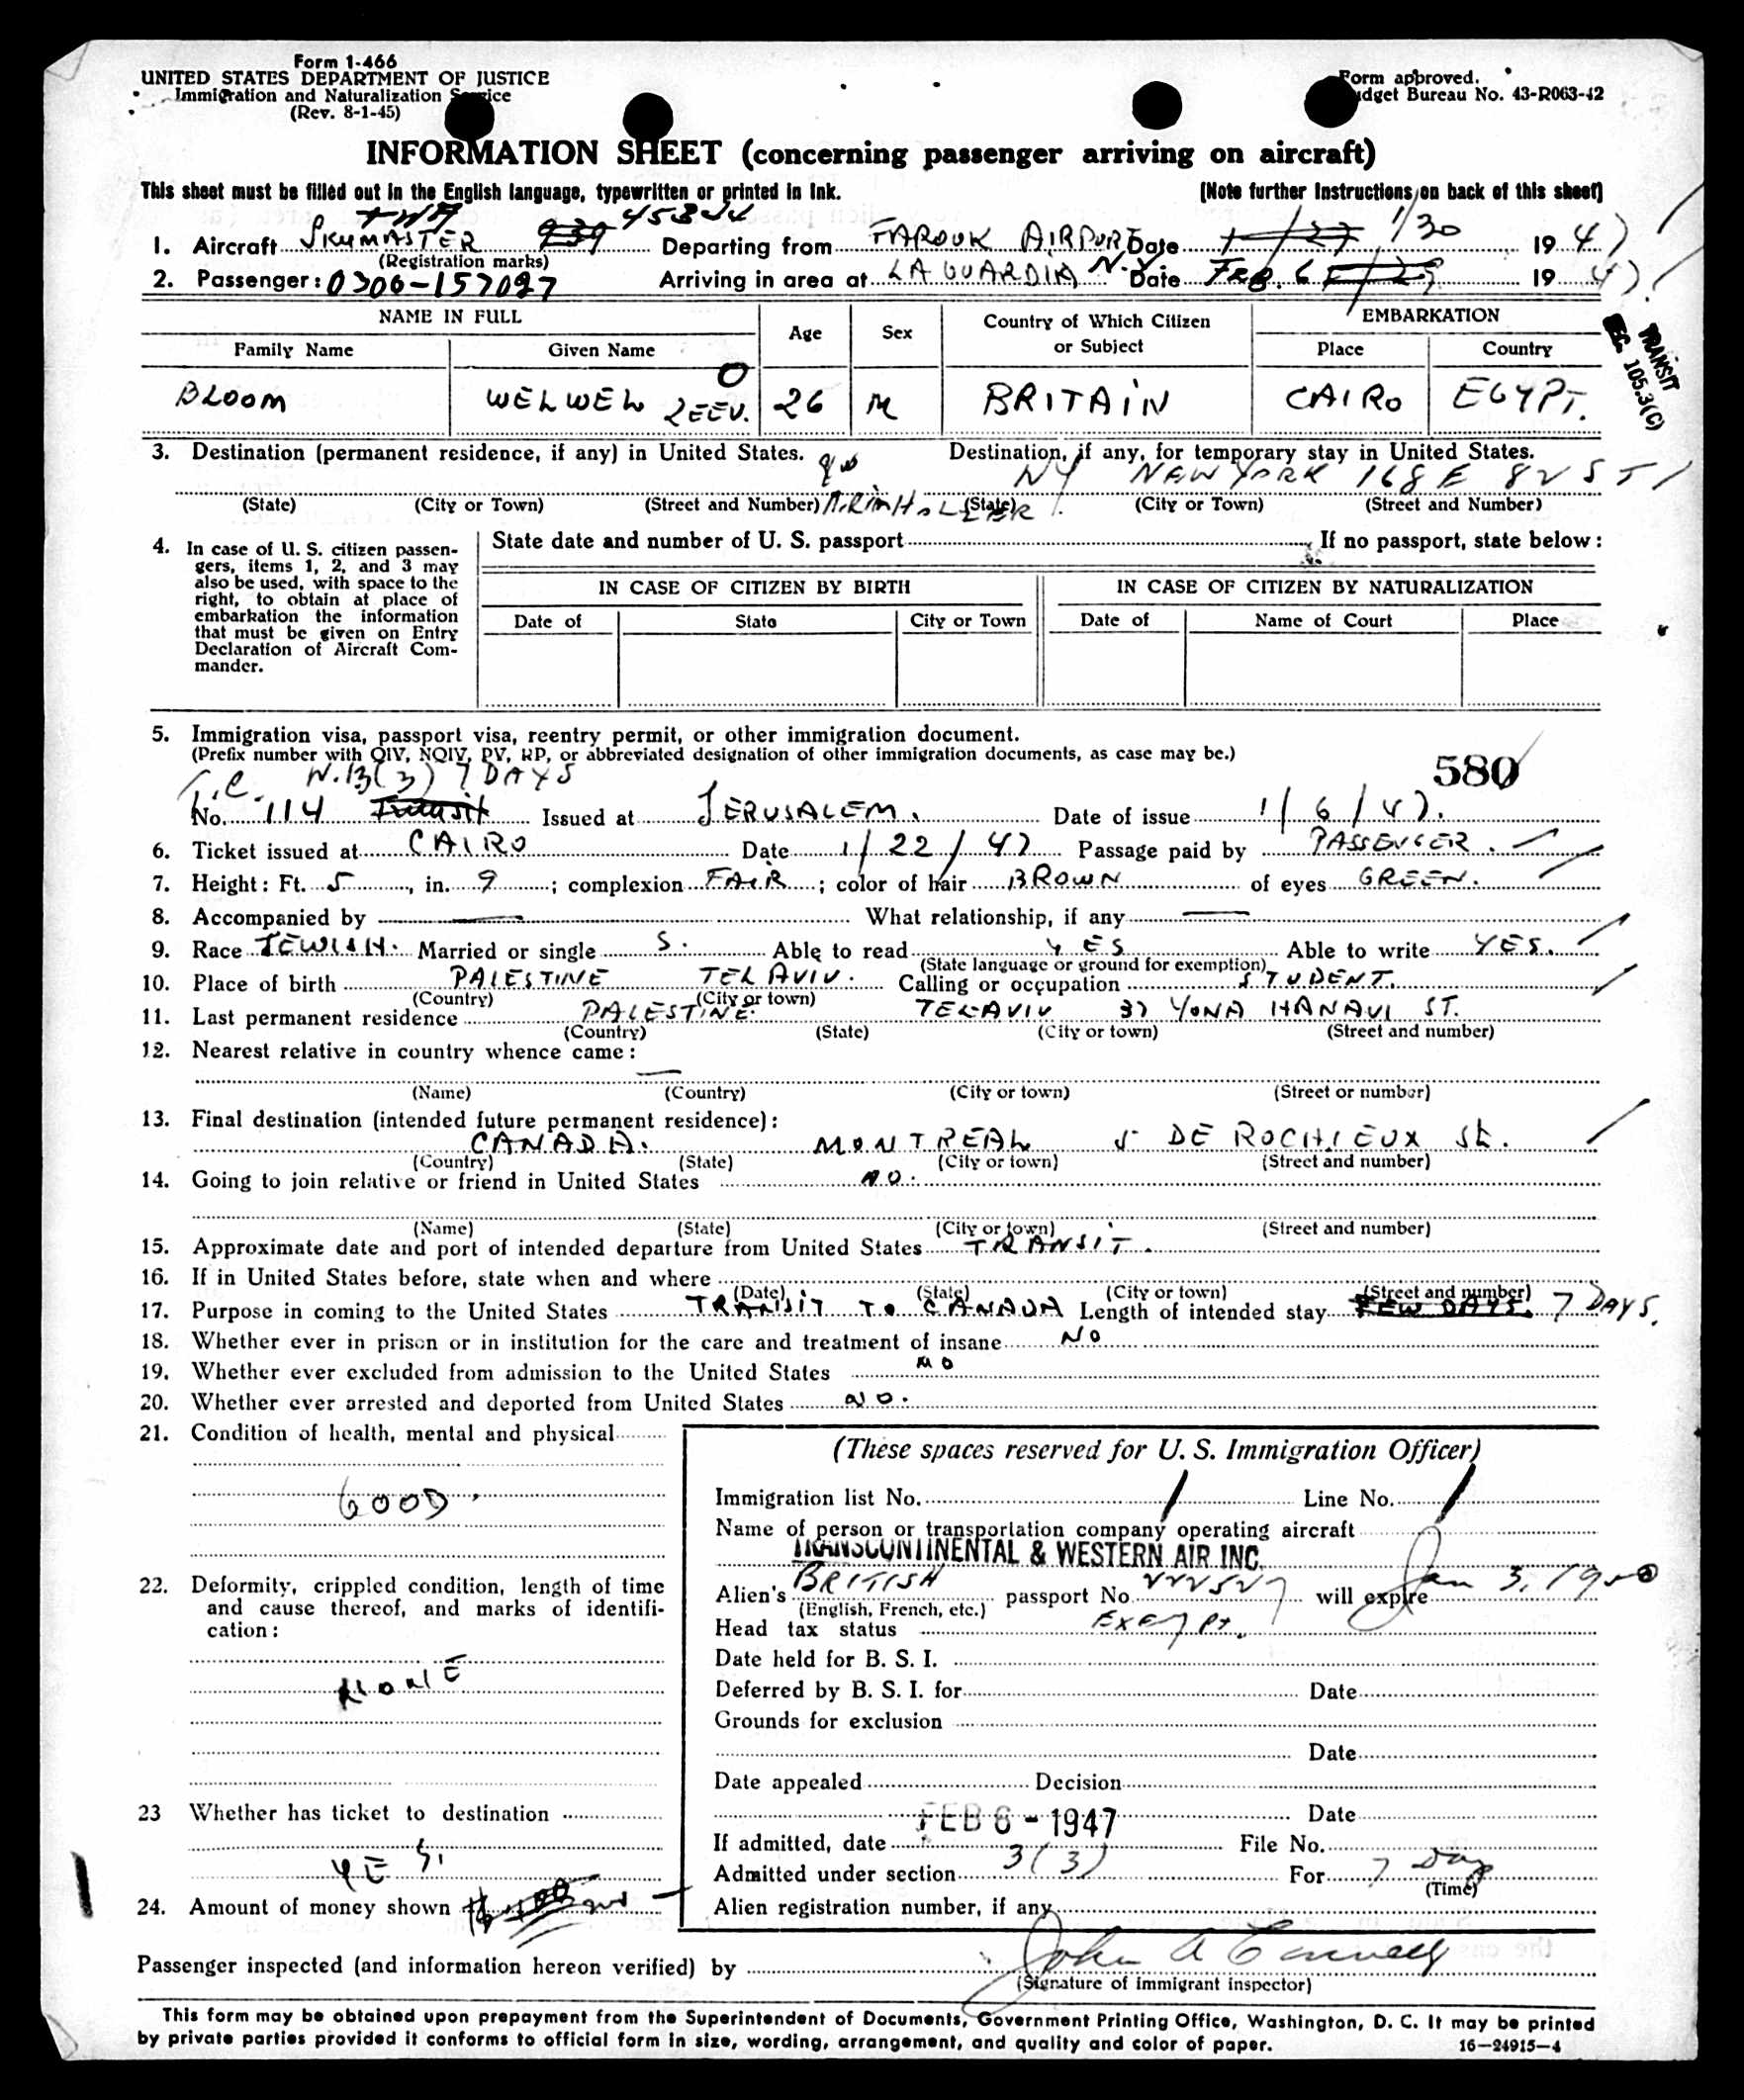 Form 1-466
UNITED STATES DEPARTMENT OF JUSTICE
Immigration and Naturalization Service
(Rev. 8-1-45)
Form approved.
Budget Bureau No. 43-R063-42
INFORMATION SHEET (concerning passenger arriving on aircraft)
This sheet must be filled out in the English language, typewritten or printed in ink.
(Note further instructions on back of this sheet)
TWA 45344
1. Aircraft SKYMASTER 939 Departing from FAROUK AIRPORT Date 1/27 1/30 1947
(Registration marks)
2. Passenger: 0306-157027 Arriving in area at LA GUARDIA N.Y. Date FEB. 6 1947
NAME IN FULL Age Sex Country of Which Citizen or Subject EMBARKATION
Family Name Given Name Place Country
BLOOM WELWEL ZEEV. O 26 M BRITAIN CAIRO EGYPT.
TRANSIT
SEC. 105.3(C)
3. Destination (permanent residence, if any) in United States. Destination, if any, for temporary stay in United States.
NY NEW YORK 168 E 82 ST
(State) (City or Town) (Street and Number) (State) (City or Town) (Street and Number)
4. In case of U. S. citizen passengers, items 1, 2, and 3 may also be used, with space to the right, to obtain at place of embarkation the information that must be given on Entry Declaration of Aircraft Commander.
State date and number of U. S. passport If no passport, state below:
IN CASE OF CITIZEN BY BIRTH IN CASE OF CITIZEN BY NATURALIZATION
Date of State City or Town Date of Name of Court Place
5. Immigration visa, passport visa, reentry permit, or other immigration document.
(Prefix number with QIV, NQIV, PV, RP, or abbreviated designation of other immigration documents, as case may be.)
580
T.C. W.13(3) 7 DAYS
No. 114 Transit Issued at JERUSALEM. Date of issue 1/6/47.
6. Ticket issued at CAIRO Date 1/22/47 Passage paid by PASSENGER.
7. Height: Ft. 5, in. 9; complexion FAIR; color of hair BROWN of eyes GREEN.
8. Accompanied by — What relationship, if any —
9. Race JEWISH. Married or single S. Able to read YES Able to write YES.
(State language or ground for exemption)
10. Place of birth PALESTINE TEL AVIV. Calling or occupation STUDENT.
(Country) (City or town)
11. Last permanent residence PALESTINE. TEL-AVIV 37 YONA HANAVI ST.
(Country) (State) (City or town) (Street and number)
12. Nearest relative in country whence came:
—
(Name) (Country) (City or town) (Street or number)
13. Final destination (intended future permanent residence):
CANADA. MONTREAL 5 DE ROCHIEUX St.
(Country) (State) (City or town) (Street and number)
14. Going to join relative or friend in United States NO.
(Name) (State) (City or town) (Street and number)
15. Approximate date and port of intended departure from United States TRANSIT.
16. If in United States before, state when and where
(Date) (State) (City or town) (Street and number)
17. Purpose in coming to the United States TRANSIT TO CANADA Length of intended stay FEW DAYS. 7 DAYS.
18. Whether ever in prison or in institution for the care and treatment of insane NO
19. Whether ever excluded from admission to the United States NO
20. Whether ever arrested and deported from United States NO.
21. Condition of health, mental and physical
GOOD.
22. Deformity, crippled condition, length of time and cause thereof, and marks of identification:
NONE
23 Whether has ticket to destination
YES.
24. Amount of money shown
(These spaces reserved for U. S. Immigration Officer)
Immigration list No. 1 Line No. 1
Name of person or transportation company operating aircraft
TRANSCONTINENTAL & WESTERN AIR INC.
Alien's BRITISH passport No. 222527 will expire Jan 3, 1950
(English, French, etc.)
Head tax status Exempt.
Date held for B. S. I.
Deferred by B. S. I. for Date
Grounds for exclusion
Date
Date appealed Decision
Date
If admitted, date FEB 6 - 1947 File No.
Admitted under section 3(3) For 7 Days
(Time)
Alien registration number, if any
Passenger inspected (and information hereon verified) by John A
(Signature of immigrant inspector)
This form may be obtained upon prepayment from the Superintendent of Documents, Government Printing Office, Washington, D. C. It may be printed
by private parties provided it conforms to official form in size, wording, arrangement, and quality and color of paper.
16—24915-4